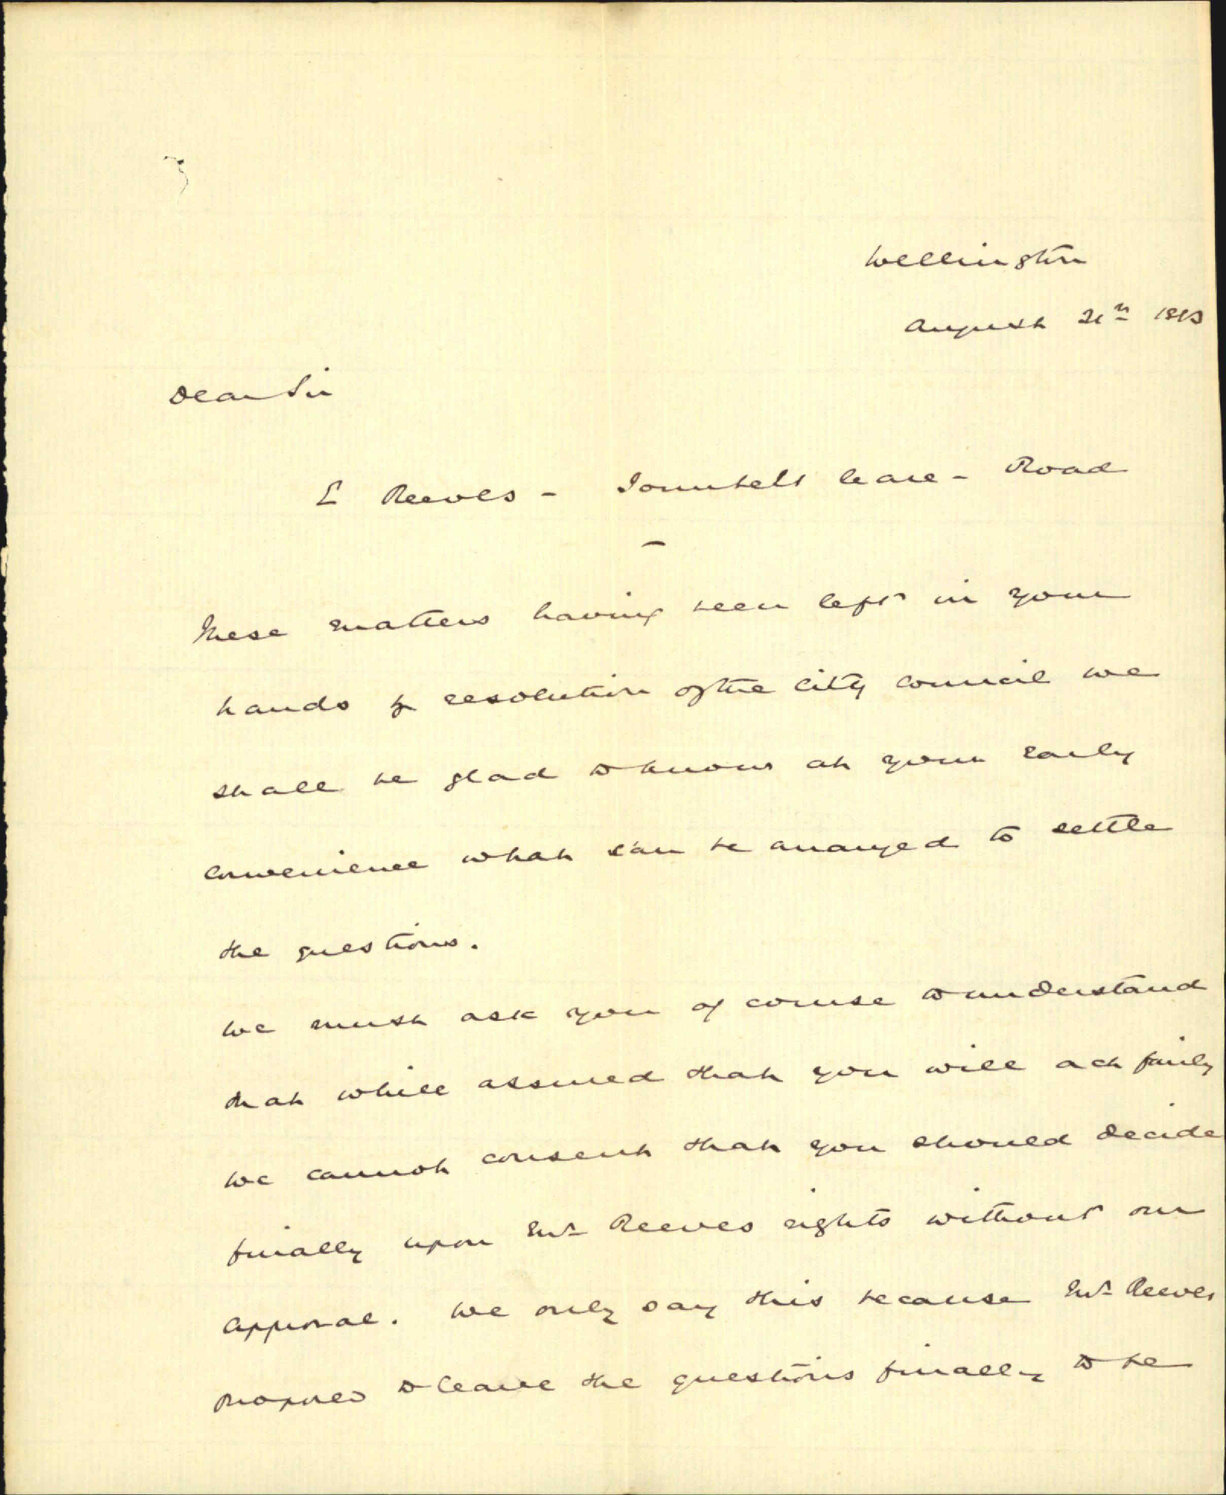 Wellington
August 21st
Dear Sir
E Reeves - Townbelt lease - Road
These matters having been left in your
hands by resolution of the City Council we
shall be glad to know at your early
convenience what can be arranged to settle
the questions.
We must ask you of course to understand
that while assured that you will act fairly
we cannot consent that you should decide
finally upon Mr Reeves rights without our
approval. We only say this because Mr Reeves
proposed to leave the questions finally to be